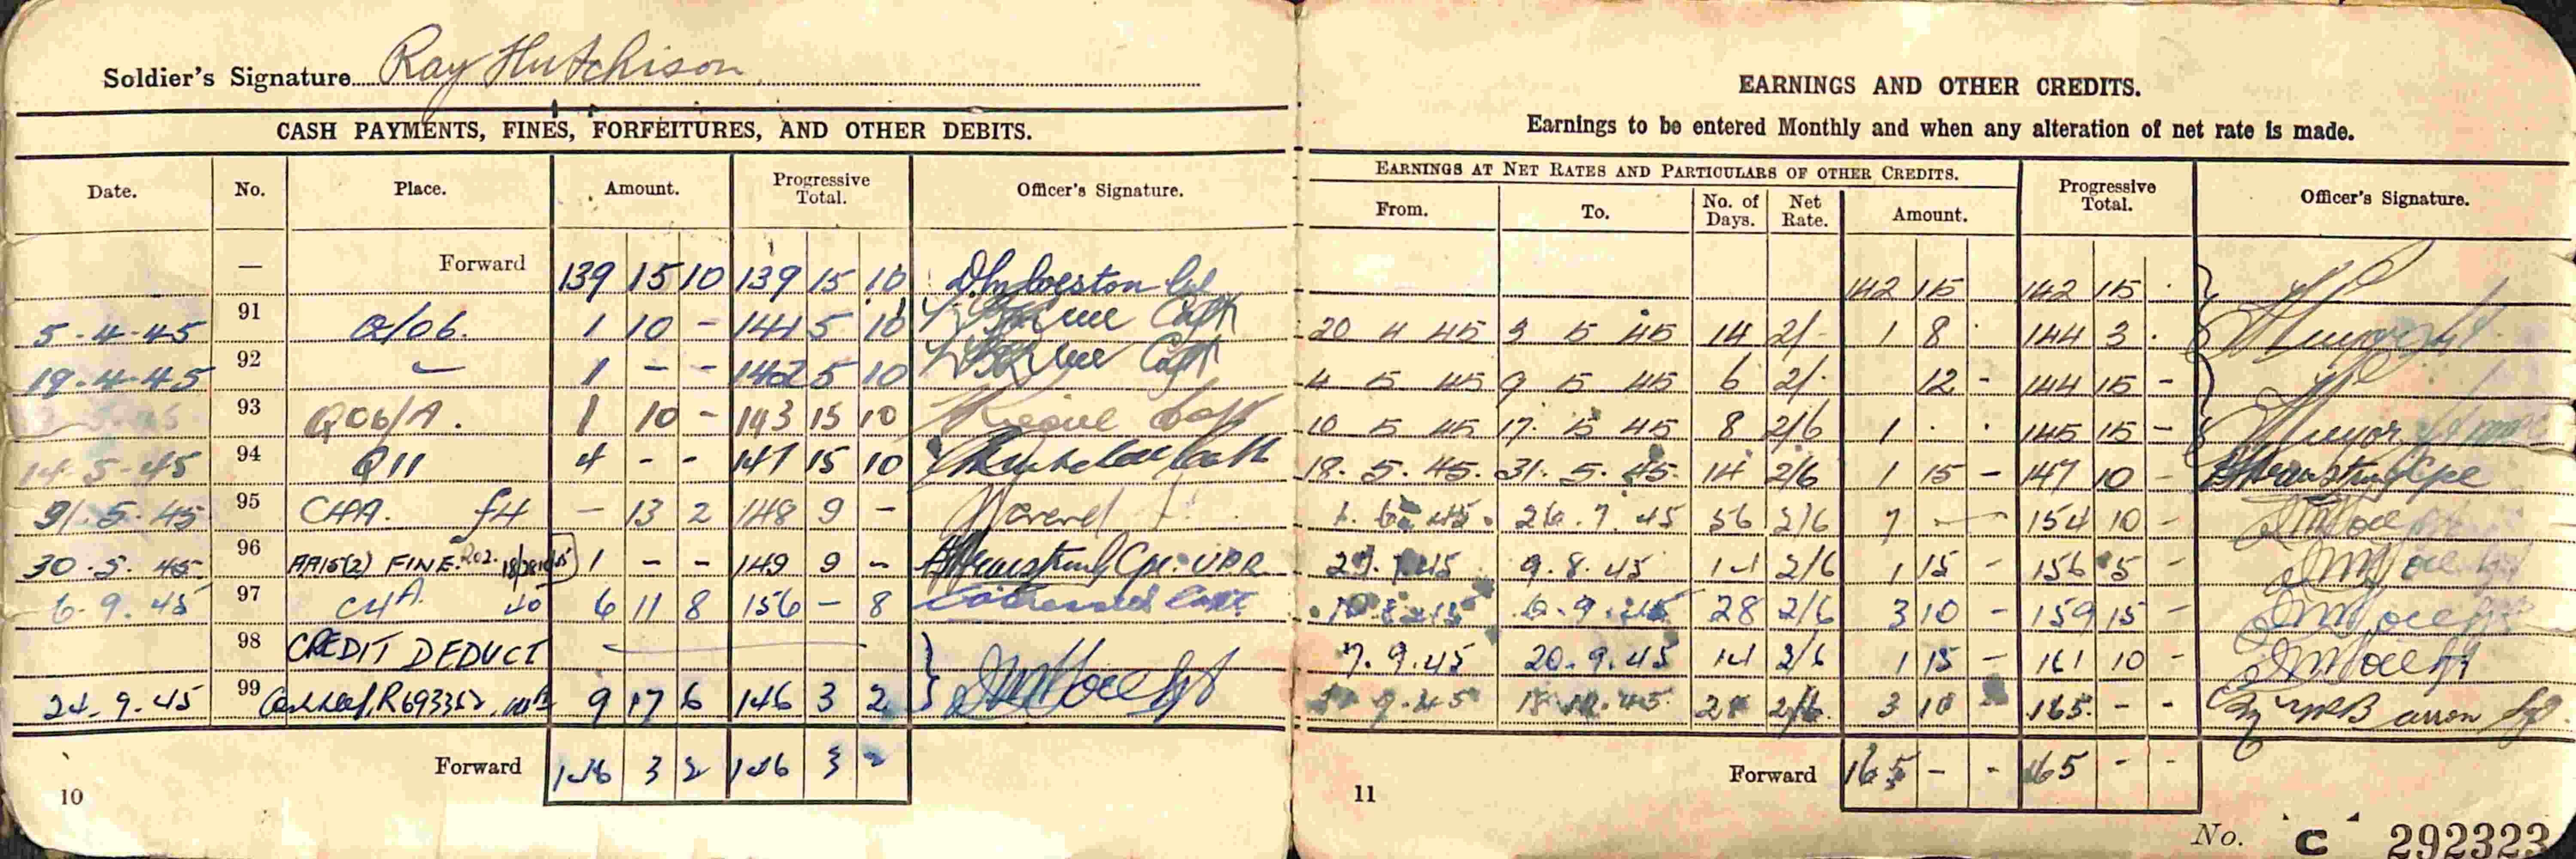 Soldier's Signature Ray Hutchison
CASH PAYMENTS, FINES, FORFEITURES, AND OTHER DEBITS.
Date. No. Place. Amount. Progressive Total. Officer's Signature.
— Forward 139 15 10 139 15 10
5-4-45 91 Q/06. 1 10 - 141 5 10 Capt
19-4-45 92 1 - - 142 5 10 Capt
93 Q06/A. 1 10 - 143 15 10
14-5-45 94 Q11 4 - - 147 15 10
31.5.45 95 CHA. - 13 2 148 9 -
30.5.45 96 AA15(2) FINE. 1 - - 149 9 -
6-9.45 97 CHA. 40 6 11 8 156 - 8
98 CREDIT DEDUCT
24.9.45 99 9 17 6 146 3 2
Forward 146 3 2 146 3 2
10
EARNINGS AND OTHER CREDITS.
Earnings to be entered Monthly and when any alteration of net rate is made.
EARNINGS AT NET RATES AND PARTICULARS OF OTHER CREDITS.
From. To. No. of Days. Net Rate. Amount. Progressive Total. Officer's Signature.
142 15 142 15
20 4 45 3 5 45 14 2/- 1 8 144 3
4 5 45 9 5 45 6 2/- 12 - 144 15 -
10 5 45 17. 5 45 8 2/6 1 145 15 -
18. 5. 45. 31. 5. 45. 14 2/6 1 15 - 147 10 -
1. 6. 45. 26. 7. 45 56 2/6 7 154 10 -
27. 7. 45 9. 8. 45 14 2/6 1 15 - 156 5 -
10 8 45 6. 9. 45 28 2/6 3 10 - 159 15 -
7. 9. 45 20. 9. 45 14 2/6 1 15 - 161 10 -
9.45 18.10.45 28 2/6 3 10 165 - -
Forward 165 - - 165 - -
11
No. C 292323